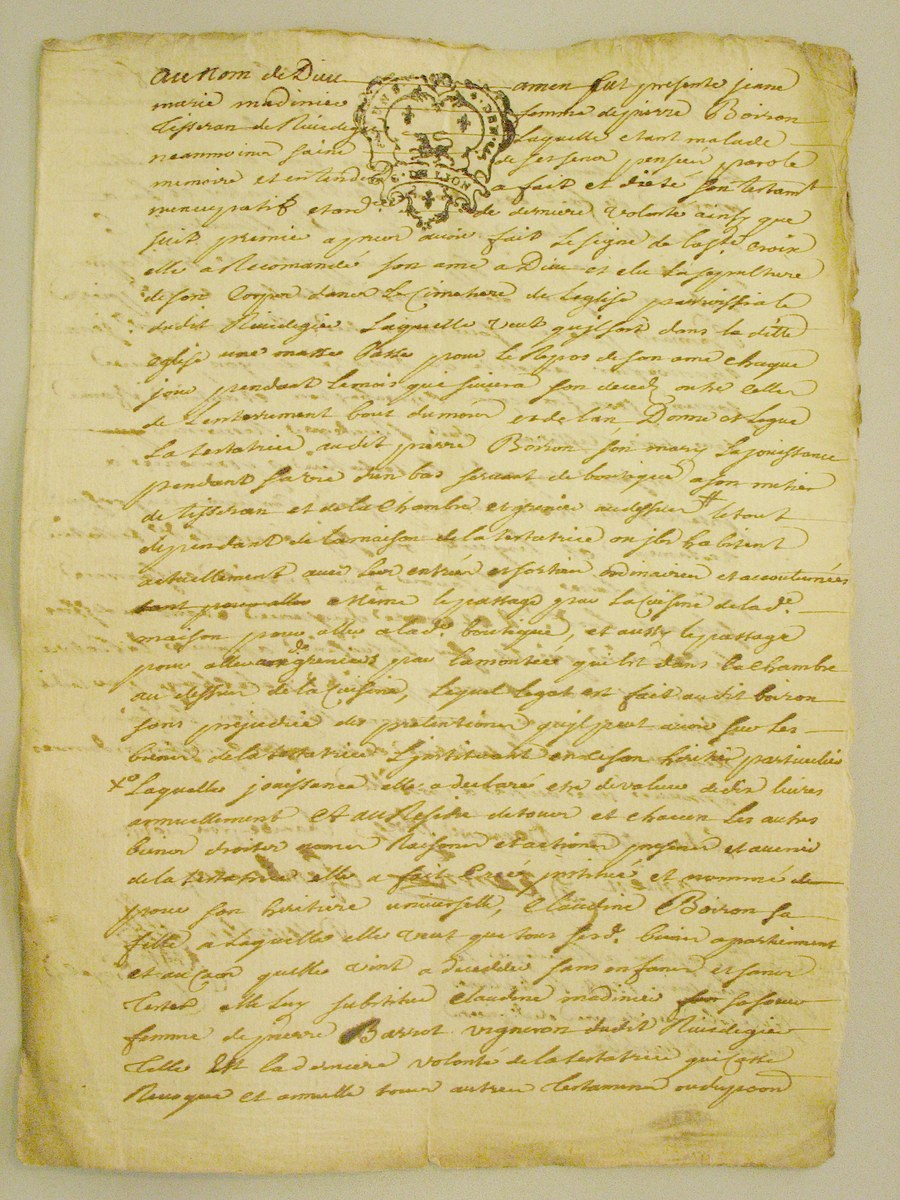 au nom de Dieu amen fut presente jeane
marie madinier femme de pierre Boiron
Tisseran de Rividegie laquelle etant malade
neanmoins saine de ses sens pensée parole
memoire et entendem a fait et dicté son testamt
nuncupatif et ord de derniere volonté ainsy que
suit premier apres avoir fait le signe de la ste croix
elle a Recomandé son ame a Dieu et elu la sepulture
de son Corps dans le Cimetiere de leglise parroissiale
dudit Rividegie laquelle veut quil soit dans la ditte
eglise une messe Basse pour le Repos de son ame chaque
jour pendant le mois qui suivra son deces outre celles
de l'enterrement bout du mois et de l'an Donne et legue
la testatrice audit pierre Boiron son mary la jouissance
pendant sa vie d'un bas servant de boutique a son metier
de tisseran et de la chambre et grenier au dessus le tout
dependant de la maison de la testatrice ou jls habitent
actuellement avec leur entrées et sorties ordinaires et accoutumées
tant pour aller même le passage par la cuisine de la de
maison pour aller a la de boutique, et aussy le passage
pour aller au de grenier par la montée qui est dans la chambre
au dessus de la cuisine, lequel legat est fait audit boiron
sans prejudice des pretentions qu'jl peut avoir sur les
biens de la testatrice l'jnstituant en ce son heritier particulier
xo Laquelle jouissance elle a declaré etre de valeur de dix livres
annuellement Et au Residu de tous et chacun les autres
biens droits noms Raisons et actions presens et avenir
de la testatrice elle a fait Créé jnstitué et nommé de
pour son heritiere universelle, Claudine Boiron sa
fille a laquelle elle veut que tous ses d. biens apartiennent
et au cas quelle vint a deceder sans enfans et sans
tester elle luy substitue claudine madinier sa soeur
femme de pierre Barrot vigneron dudit Rividegie
Telle Est la derniere volonté de la testatrice qui Casse
Revoque et annulle tous autres testamens ou